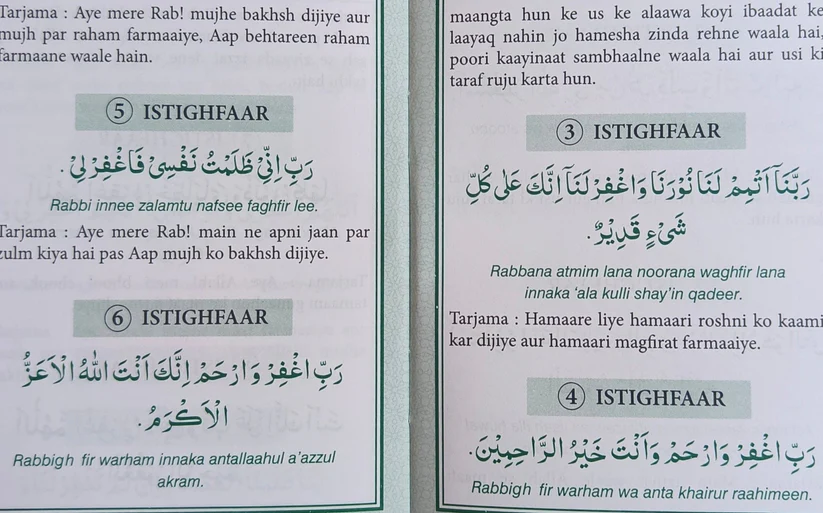 Tarjama : Aye mere Rab! mujhe bakhsh dijiye aur
mujh par raham farmaaiye, Aap behtareen raham
farmaane waale hain.
5 ISTIGHFAAR
رَبِّ اِنِّيْ ظَلَمْتُ نَفْسِيْ فَاغْفِرْ لِيْ.
Rabbi innee zalamtu nafsee faghfir lee.
Tarjama : Aye mere Rab! main ne apni jaan par
zulm kiya hai pas Aap mujh ko bakhsh dijiye.
6 ISTIGHFAAR
رَبِّ اغْفِرْ وَارْحَمْ اِنَّكَ اَنْتَ اللّٰهُ الْاَعَزُّ
الْاَكْرَمُ.
Rabbigh fir warham innaka antallaahul a'azzul
akram.
maangta hun ke us ke alaawa koyi ibaadat ke
laayaq nahin jo hamesha zinda rehne waala hai,
poori kaayinaat sambhaalne waala hai aur usi ki
taraf ruju karta hun.
3 ISTIGHFAAR
رَبَّنَآ اَتْمِمْ لَنَا نُوْرَنَا وَاغْفِرْ لَنَآ اِنَّكَ عَلٰى كُلِّ
شَيْءٍ قَدِيْرٌ.
Rabbana atmim lana noorana waghfir lana
innaka ‘ala kulli shay’in qadeer.
Tarjama : Hamaare liye hamaari roshni ko kaami
kar dijiye aur hamaari magfirat farmaaiye.
4 ISTIGHFAAR
رَبِّ اغْفِرْ وَارْحَمْ وَاَنْتَ خَيْرُ الرَّاحِمِيْنَ.
Rabbigh fir warham wa anta khairur raahimeen.